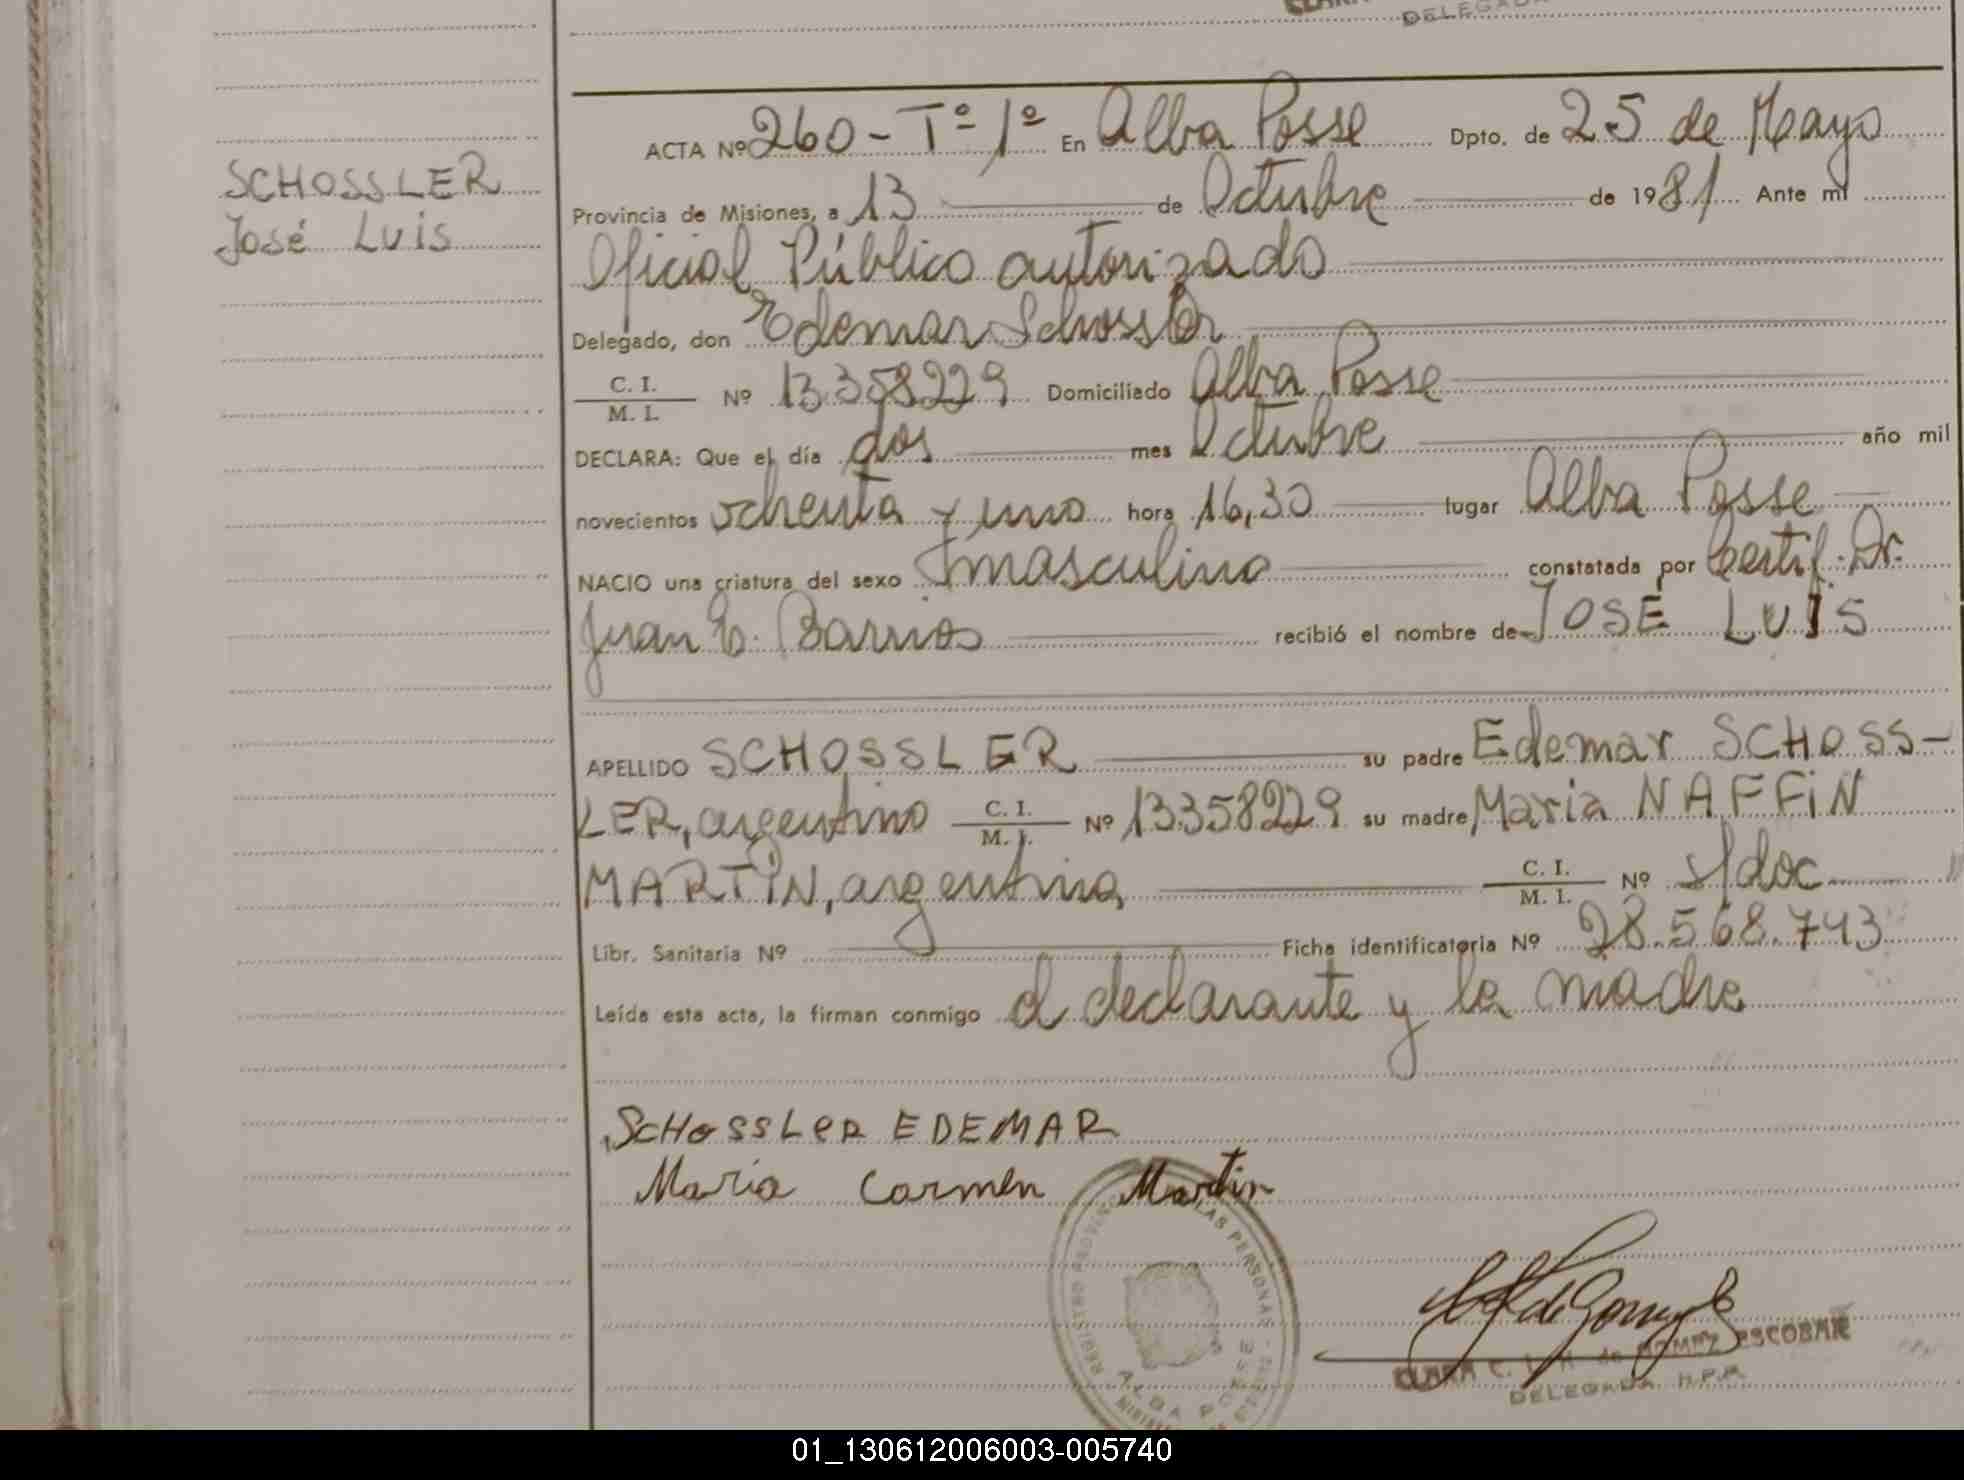 DELEGADA
ACTA Nº 260 - Tº 1º En Alba Posse Dpto. de 25 de Mayo
SCHOSSLER
José Luis
Provincia de Misiones, a 13 de Octubre de 1981 Ante mí
Oficial Público autorizado
Delegado, don Edemar Schossler
C. I.
M. I. Nº 13358229 Domiciliado Alba Posse
DECLARA: Que el día dos mes Octubre año mil
novecientos ochenta y uno hora 16,30 lugar Alba Posse
NACIO una criatura del sexo masculino constatada por Certif. Dr.
Juan E. Barrios recibió el nombre de JOSÉ LUIS
APELLIDO SCHOSSLER su padre Edemar SCHOSS-
LER, argentino C. I. M. I. Nº 13358229 su madre Maria NAFFIN
MARTIN, argentina, C. I. M. I. Nº s/doc
Libr. Sanitaria Nº Ficha identificatoria Nº 28.568.743
Leída esta acta, la firman conmigo el declarante y la madre
SCHOSSLER EDEMAR
María Carmen Martin
REGISTRO PROVINC LAS PERSONAS
ALBA POSSE
CLARA C. de GOMEZ ESCOBAR
DELEGADA R.P.P.
01_130612006003-005740